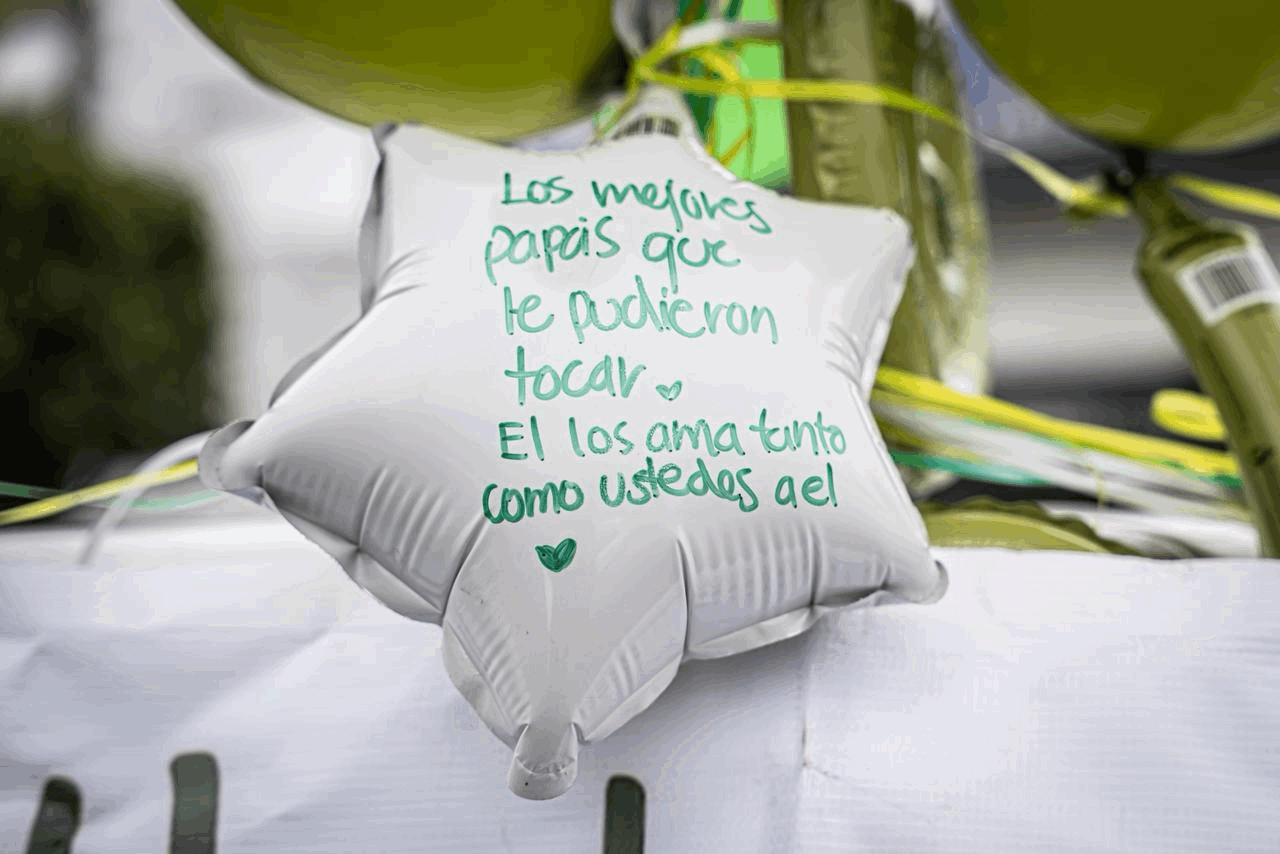 Los mejores
papais que
le pudieron
tocar.
El los ama tanto
como ustedes ael